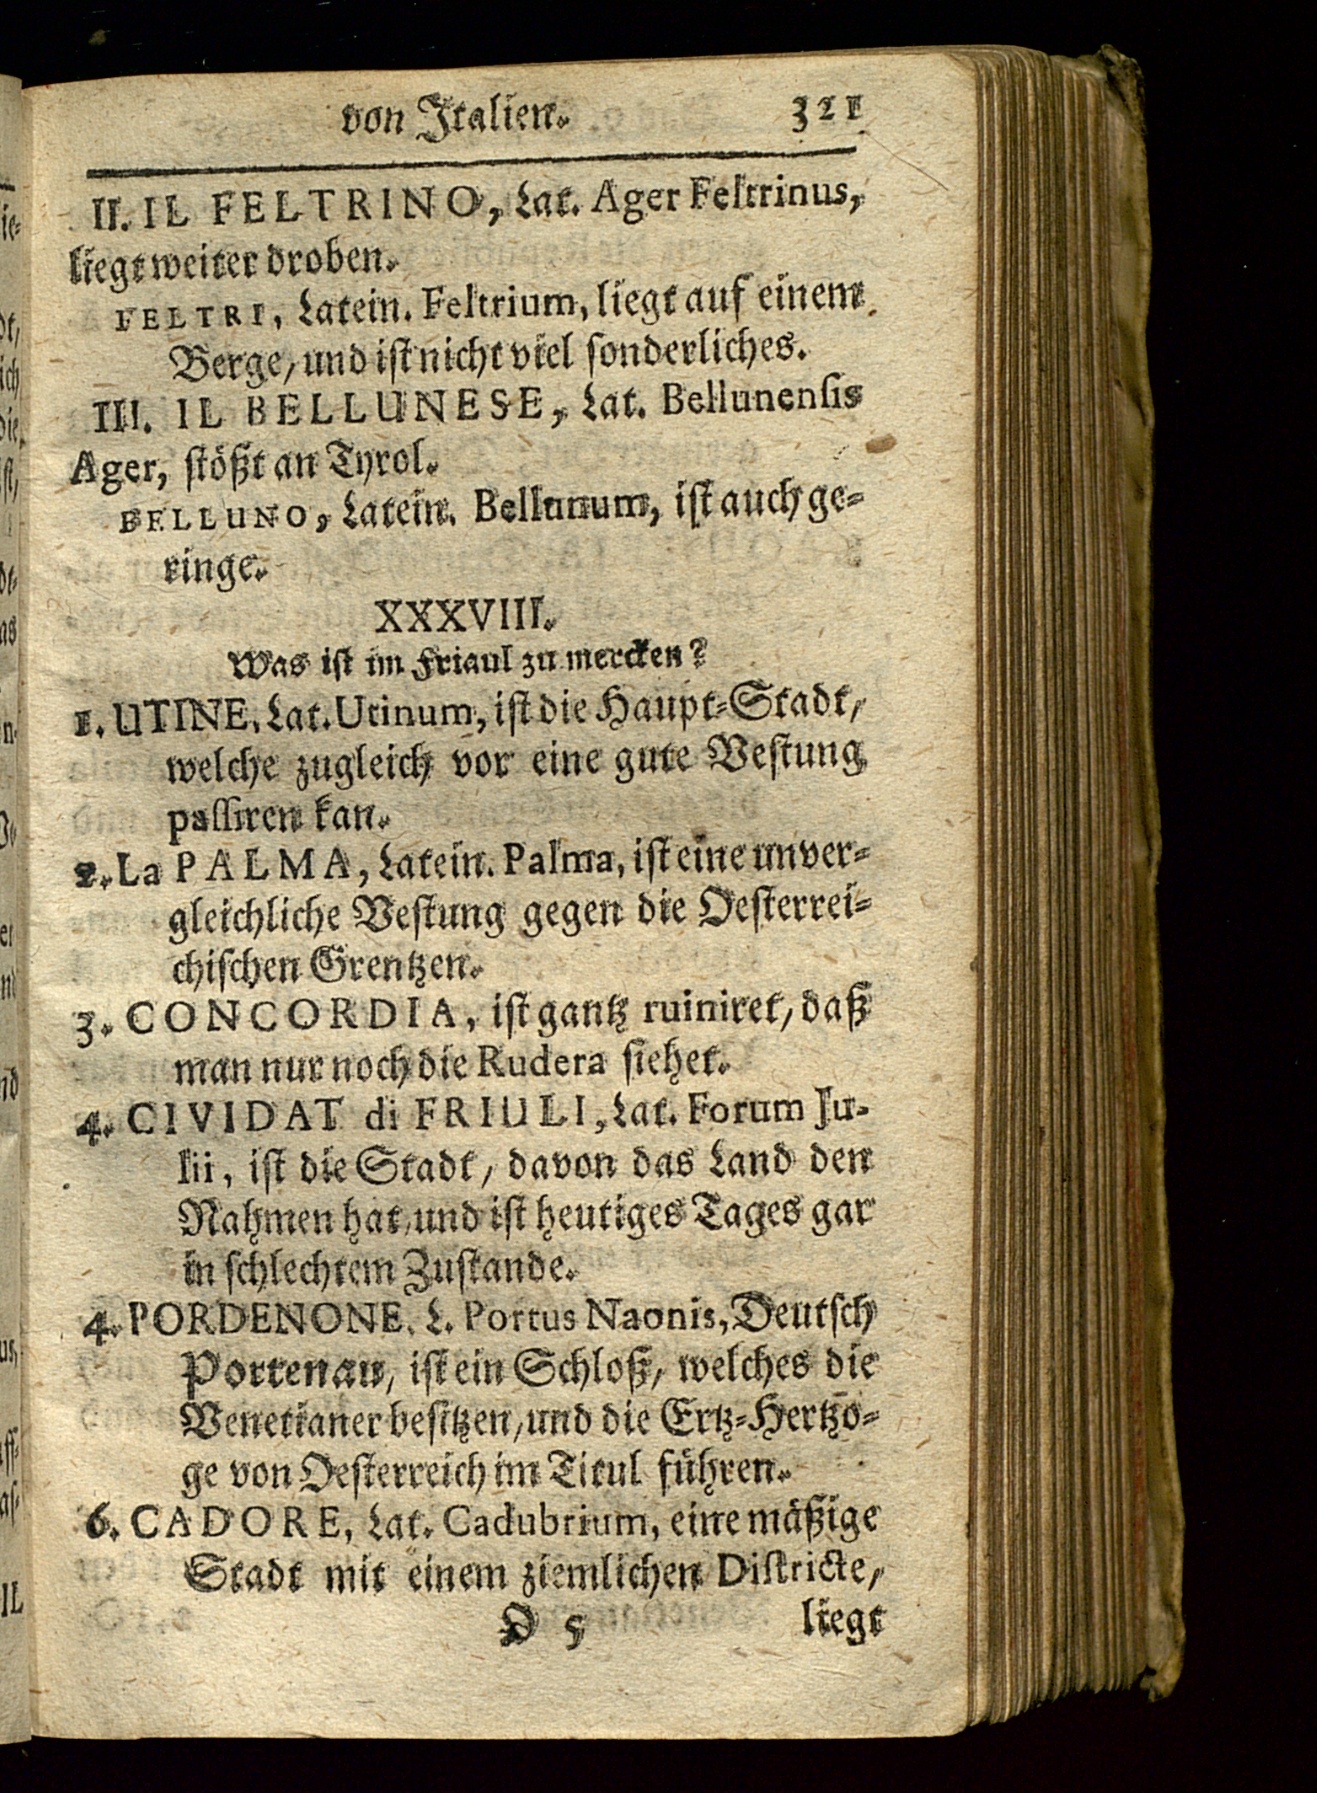 von Italien. 321
II. IL FELTRINO, Lat. Ager Feltrinus,
liegt weiter droben.
FELTRI, Latein. Feltrium, liegt auf einem
Berge, und ist nicht viel sonderliches.
III. IL BELLUNESE, Lat. Bellunensis
Ager, stößt an Tyrol.
BELLUNO, Latein. Bellunum, ist auch ge-
ringe.
XXXVIII.
Was ist im Friaul zu mercken?
1. UTINE, Lat. Utinum, ist die Haupt-Stadt,
welche zugleich vor eine gute Vestung
passiren kan.
2. La PALMA, Latein. Palma, ist eine unver-
gleichliche Vestung gegen die Oesterrei-
chischen Grentzen.
3. CONCORDIA, ist gantz ruiniret, daß
man nur noch die Rudera siehet.
4. CIVIDAT di FRIULI, Lat. Forum Ju-
lii, ist die Stadt, davon das Land den
Nahmen hat, und ist heutiges Tages gar
in schlechtem Zustande.
4. PORDENONE, L. Portus Naonis, Deutsch
Portenau, ist ein Schloß, welches die
Venetianer besitzen, und die Ertz-Hertzo-
ge von Oesterreich im Titul führen.
6. CADORE, Lat. Cadubrium, eine mäßige
Stadt mit einem ziemlichen Districte,
O 5 liegt